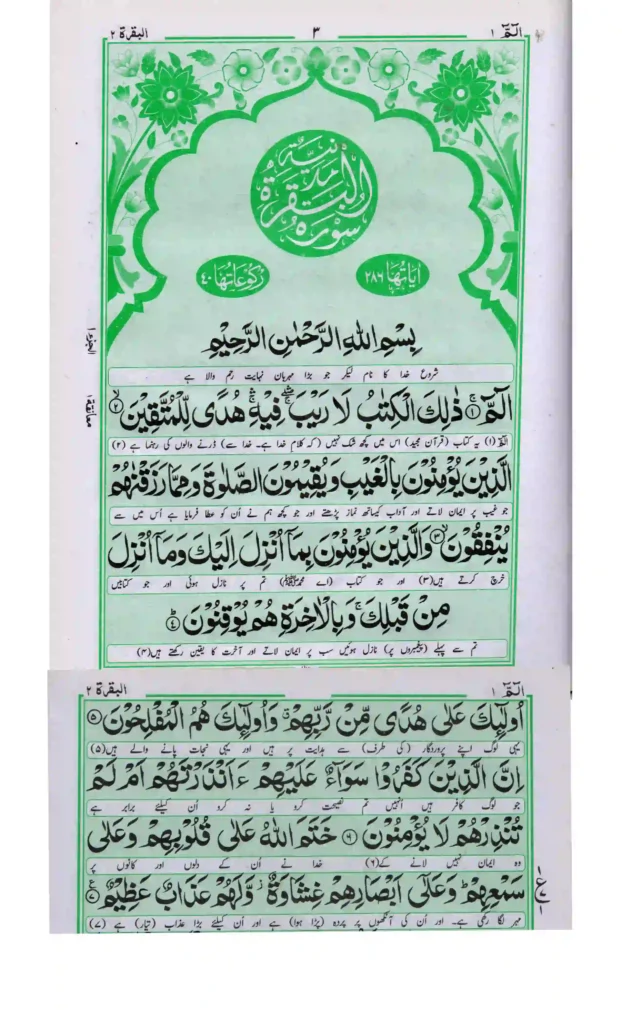 الٓمّٓ ۱
۳
البقرة ۲
سورة البقرة مدنية
اٰیَاتُهَا ۲۸۶
رُکُوْعَاتُهَا ۴۰
بِسْمِ اللهِ الرَّحْمٰنِ الرَّحِيْمِ
شروع خدا کا نام لیکر جو بڑا مہربان نہایت رحم والا ہے
الٓمّٓ ۚ﴿۱﴾ ذٰلِكَ الْكِتٰبُ لَا رَيْبَ ۛۚ فِيْهِ ۛۚ هُدًى لِّلْمُتَّقِيْنَ ۙ﴿۲﴾
الٓمّٓ (۱) یہ کتاب (قرآن مجید) اس میں کچھ شک نہیں (کہ کلام خدا ہے۔ خدا سے) ڈرنے والوں کی رہنما ہے (۲)
الَّذِيْنَ يُؤْمِنُوْنَ بِالْغَيْبِ وَيُقِيْمُوْنَ الصَّلٰوةَ وَمِمَّا رَزَقْنٰهُمْ
جو غیب پر ایمان لاتے اور آداب کیساتھ نماز پڑھتے اور جو کچھ ہم نے اُن کو عطا فرمایا ہے اُس میں سے
يُنْفِقُوْنَ ۙ﴿۳﴾ وَالَّذِيْنَ يُؤْمِنُوْنَ بِمَآ اُنْزِلَ اِلَيْكَ وَمَآ اُنْزِلَ
خرچ کرتے ہیں(۳) اور جو کتاب (اے محمد ﷺ) تم پر نازل ہوئی اور جو کتابیں
مِنْ قَبْلِكَ ۚ وَبِالْاٰخِرَةِ هُمْ يُوْقِنُوْنَ ؕ﴿۴﴾
تم سے پہلے (پیغمبروں پر) نازل ہوئیں سب پر ایمان لاتے اور آخرت کا یقین رکھتے ہیں(۴)
الجزء ۱
معانقة ۱
الٓمّٓ ۱
البقرة ۲
اُولٰٓئِكَ عَلٰى هُدًى مِّنْ رَّبِّهِمْ ۗ وَاُولٰٓئِكَ هُمُ الْمُفْلِحُوْنَ ﴿۵﴾
یہی لوگ اپنے پروردگار (کی طرف) سے ہدایت پر ہیں اور یہی نجات پانے والے ہیں(۵)
اِنَّ الَّذِيْنَ كَفَرُوْا سَوَآءٌ عَلَيْهِمْ ءَاَنْذَرْتَهُمْ اَمْ لَمْ
جو لوگ کافر ہیں انہیں تم نصیحت کرو یا نہ کرو اُن کیلئے برابر ہے
تُنْذِرْهُمْ لَا يُؤْمِنُوْنَ ﴿۶﴾ خَتَمَ اللهُ عَلٰى قُلُوْبِهِمْ وَعَلٰى
وہ ایمان نہیں لانے کے(۶) خدا نے اُن کے دلوں اور کانوں پر
سَمْعِهِمْ ؕ وَعَلٰٓى اَبْصَارِهِمْ غِشَاوَةٌ ز وَّلَهُمْ عَذَابٌ عَظِيْمٌ ﴿۷﴾
مہر لگا رکھی ہے۔ اور اُن کی آنکھوں پر پردہ (پڑا ہوا) ہے اور اُن کیلئے بڑا عذاب (تیار) ہے (۷)
۱
ع
۷
۱